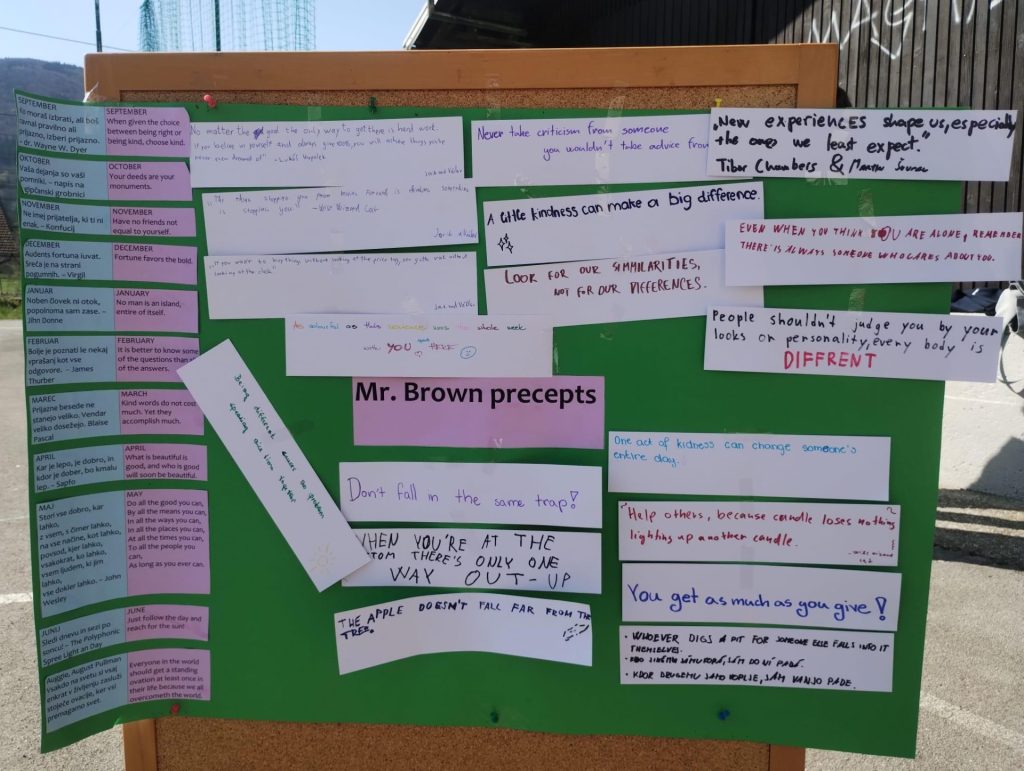 SEPTEMBER
Ko moraš izbrati, ali boš
ravnal pravilno ali
prijazno, izberi prijazno.
- dr. Wayne W. Dyer
SEPTEMBER
When given the choice
between being right or
being kind, choose kind.
OKTOBER
Vaša dejanja so vaši
pomniki. – napis na
egipčanski grobnici
OCTOBER
Your deeds are your
monuments.
NOVEMBER
Ne imej prijatelja, ki ti ni
enak. – Konfucij
NOVEMBER
Have no friends not
equal to yourself.
DECEMBER
Audents fortuna iuvat.
Sreča je na strani
pogumnih. – Virgil
DECEMBER
Fortune favors the bold.
JANUAR
Noben človek ni otok,
popolnoma sam zase. –
John Donne
JANUARY
No man is an island,
entire of itself.
FEBRUAR
Bolje je poznati le nekaj
vprašanj kot vse
odgovore. – James
Thurber
FEBRUARY
It is better to know some
of the questions than
of the answers.
MAREC
Prijazne besede ne
stanejo veliko. Vendar
veliko dosežejo. Blaise
Pascal
MARCH
Kind words do not cost
much. Yet they
accomplish much.
APRIL
Kar je lepo, je dobro, in
kdor je dober, bo kmalu
lep. – Sapfo
APRIL
What is beautiful is
good, and who is good
will soon be beautiful.
MAJ
Stori vse dobro, kar
lahko,
z vsem, s čimer lahko,
na vse načine, kot lahko,
povsod, kjer lahko,
vsakokrat, ko lahko,
vsem ljudem, ki jim
lahko,
vse dokler lahko. – John
Wesley
MAY
Do all the good you can,
By all the means you can,
In all the ways you can,
In all the places you can,
At all the times you can,
To all the people you
can,
As long as you ever can.
JUNIJ
Sledi dnevu in sezi po
soncu! – The Polyphonic
Spree Light an Day
JUNE
Just follow the day and
reach for the sun!
Auggie, August Pullman
vsakdo na svetu si vsaj
enkrat v življenju zasluži
stoječe ovacije, ker vsi
premagamo svet.
Everyone in the world
should get a standing
ovation at least once in
their life because we all
overcometh the world.
No matter the god the only way to get there is hard work.
If you believe in yourself and always give 100%, you will achieve things you've
never even dreamed of
is stopping you
"If you want to buy things without looking at the price tag,
looking at the clock"
As colourful as this sentence was the whole week
with YOU HERE
Being different causes no problem
Never take criticism from someone
you wouldn't take advice from
"New experiences shape us, especially
the ones we least expect."
Tibor Chambers &
A little kindness can make a big difference.
LOOK FOR OUR SIMMILARITIES,
NOT FOR OUR DIFFERENCES.
EVEN WHEN YOU THINK YOU ARE ALONE, REMEMBER
THERE IS ALWAYS SOMEONE WHO CARES ABOUT YOU.
People shouldn't judge you by your
looks or personality, every body is
DIFFRENT
Mr. Brown precepts
Don't fall in the same trap!
WHEN YOU'RE AT THE
TOM THERE'S ONLY ONE
WAY OUT-UP
THE APPLE DOESN'T FALL FAR FROM THE
TREE.
One act of kidness can change someone's
entire day.
"Help others, because candle loses nothing
lighting up another candle.
You get as much as you give!
• WHOEVER DIGS A PIT FOR SOMEONE ELSE FALLS INTO IT
THEMSELVES.
• KDOR DRUGEMU JAMO KOPLJE, SAM VANJO PADE.